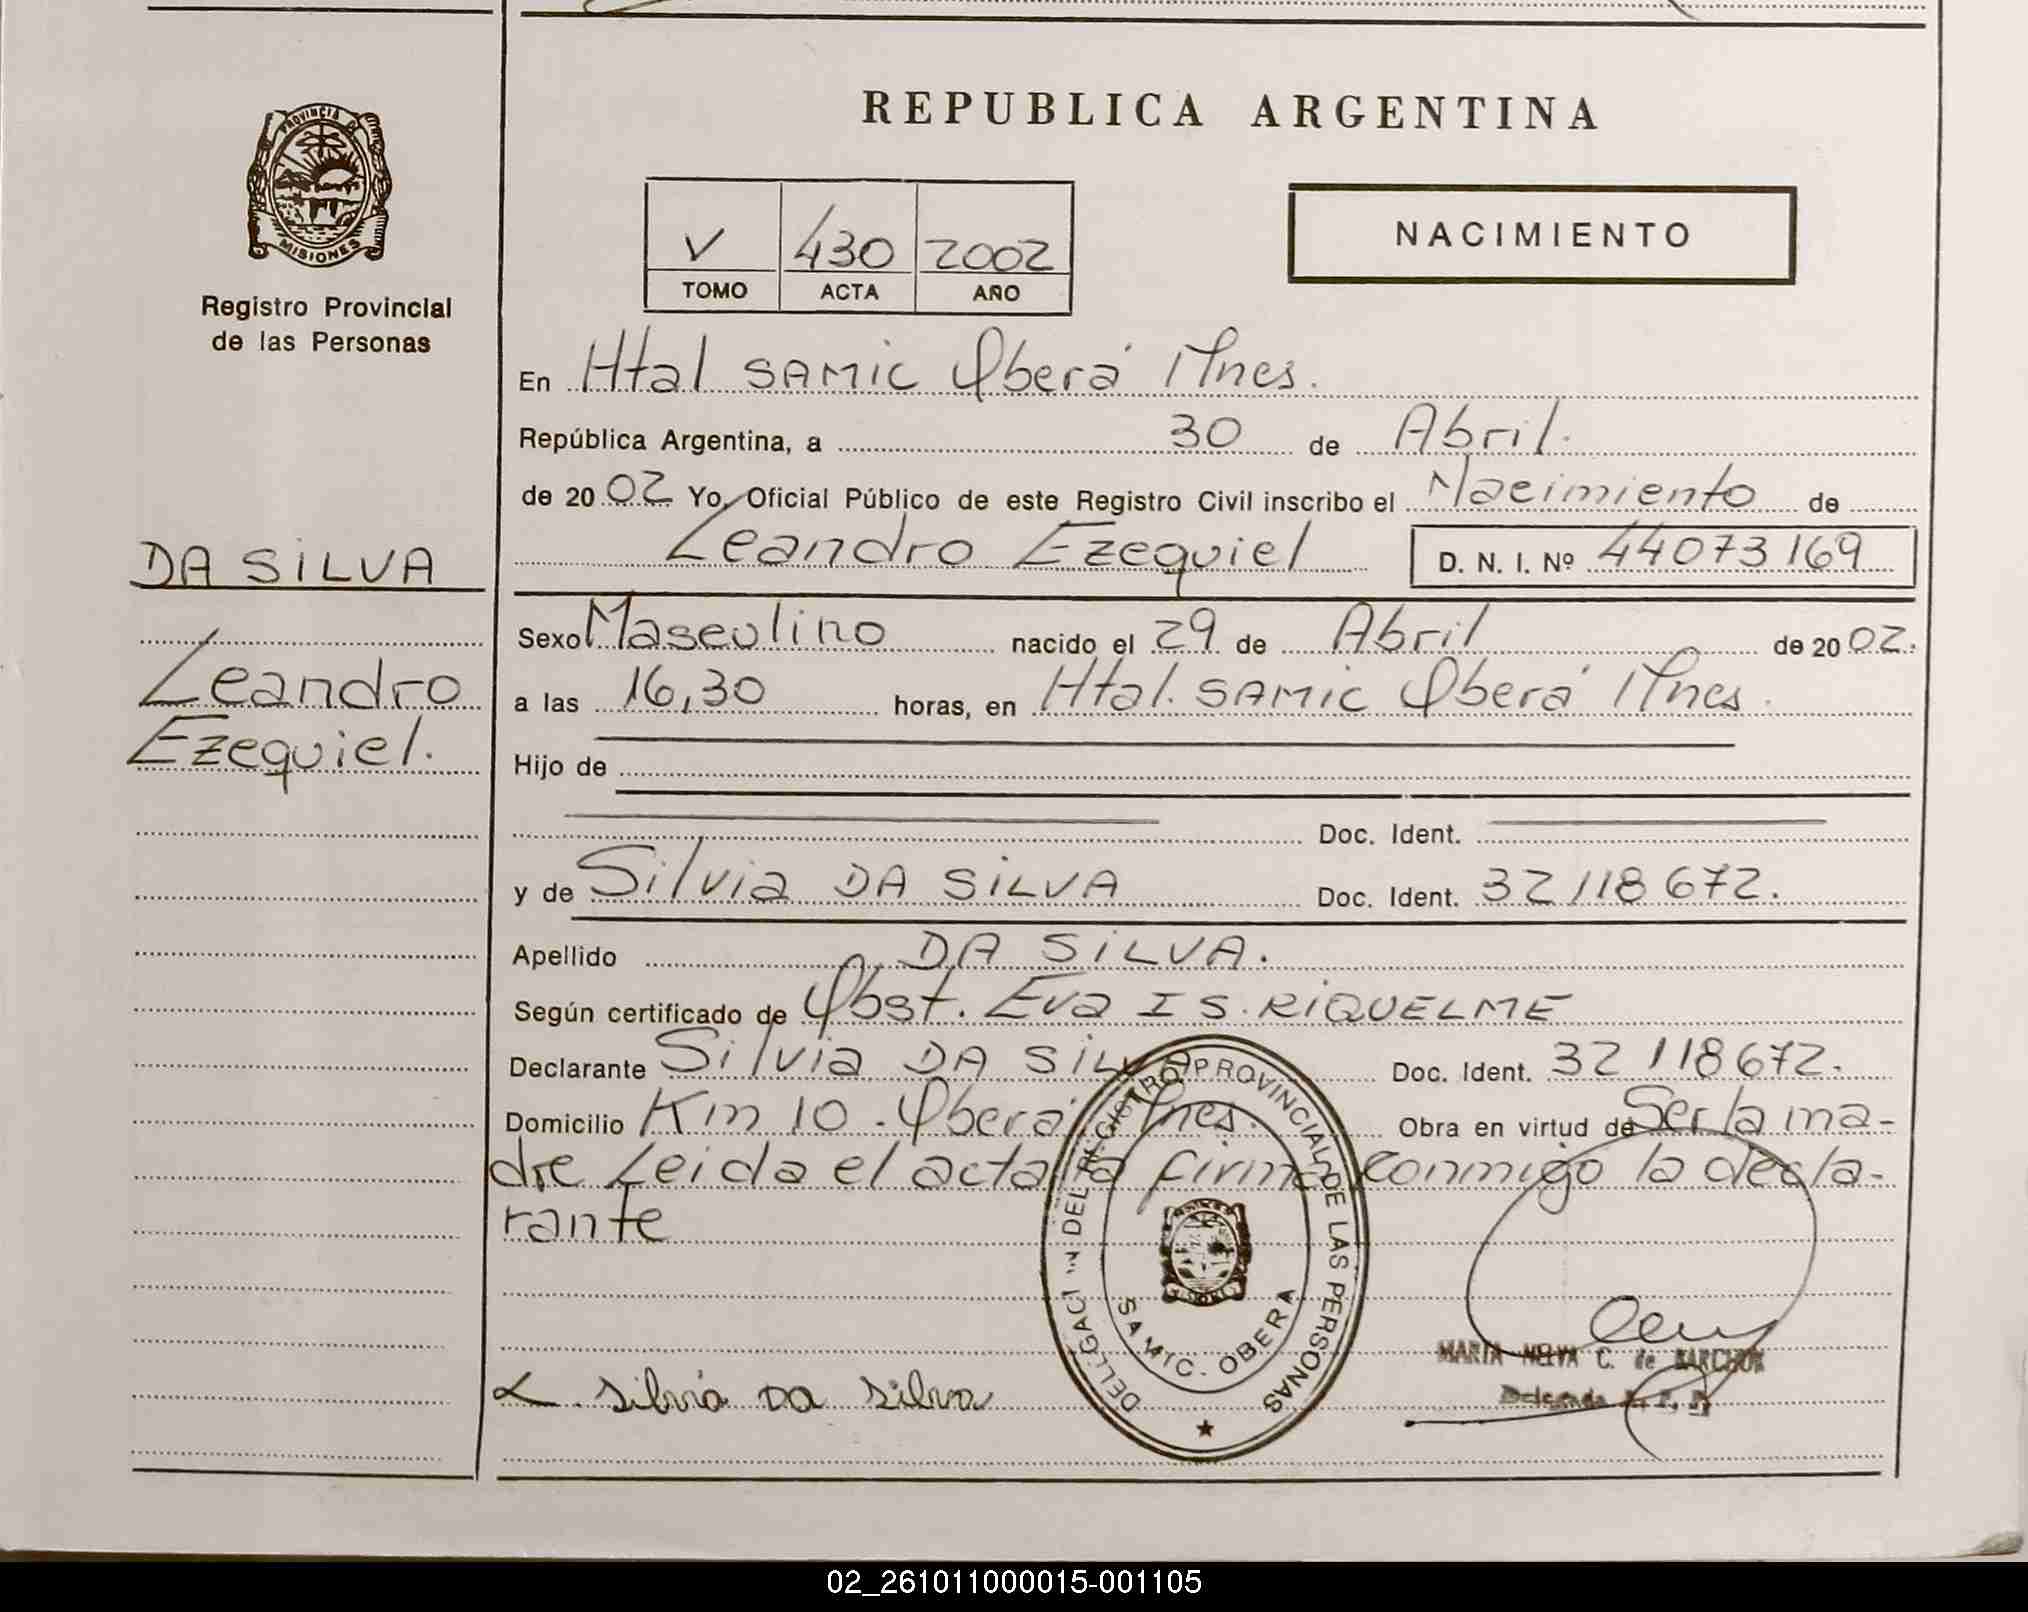 REPUBLICA ARGENTINA
PROVINCIA D
MISIONES
Registro Provincial
de las Personas
V 430 2002
TOMO ACTA AÑO
NACIMIENTO
En Htal SAMIC Oberá Mnes.
República Argentina, a 30 de Abril.
de 20 02 Yo, Oficial Público de este Registro Civil inscribo el Nacimiento de
Leandro Ezequiel D. N. I. Nº 44073169
DA SILVA
Leandro
Ezequiel.
Sexo Masculino nacido el 29 de Abril de 20 02.
a las 16,30 horas, en Htal. SAMIC Oberá Mnes.
Hijo de
Doc. Ident.
y de Silvia DA SILVA Doc. Ident. 32118672.
Apellido DA SILVA.
Según certificado de Obst. Eva IS. RIQUELME
Declarante Silvia DA SILVA Doc. Ident. 32118672.
Domicilio Km 10 - Oberá Mnes. Obra en virtud de Ser la ma-
dre Leida el acta la firma conmigo la decla-
rante
DELEGACI N DEL REGISTRO PROVINCIAL DE LAS PERSONAS
SAMIC. OBERA
Silvia DA Silva
MARIA NELVA C. de
Delegada
02_261011000015-001105